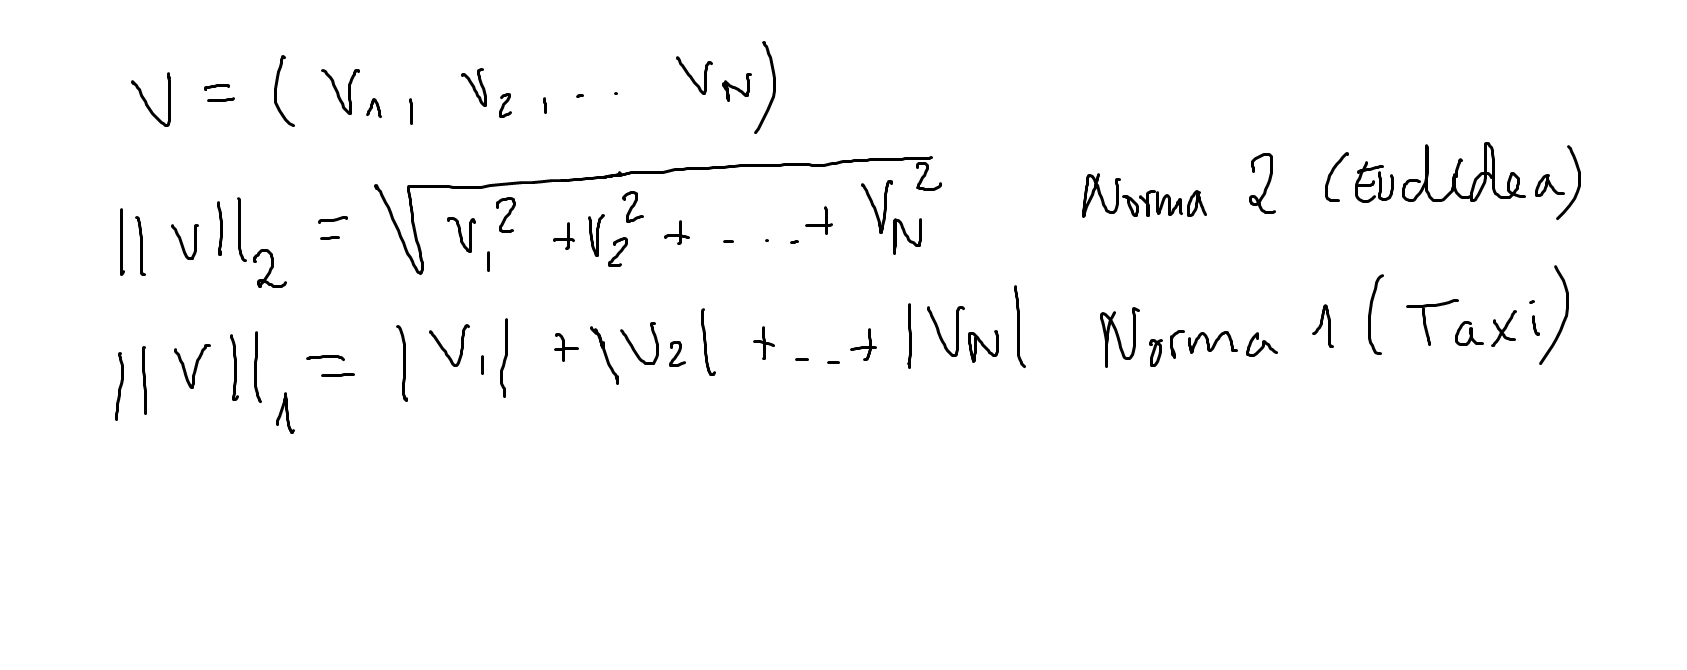 V = (V₁, V₂, ... V_N)
||V||₂ = √(V₁² + V₂² + ... + V_N²) Norma 2 (Euclidea)
||V||₁ = |V₁| + |V₂| + ... + |V_N| Norma 1 (Taxi)